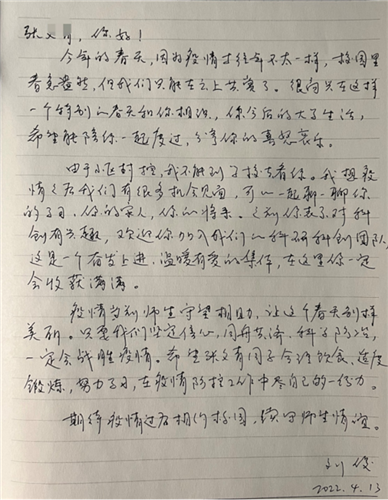 张文 ，你好！
今年的春天，因为疫情比往年不太一样，校园里
春意盎然，但我们只能在云上共赏了。很高兴在这样
一个特别的春天和你相识，你今后的大学生活，
希望能陪你一起度过，分享你的喜怒哀乐。
由于 封控，我不能到学校去看你。我想疫
情之后我们有很多机会见面，可以一起聊一聊你
的学习，你的家人，你的将来。之前你表示对科
创有兴趣，欢迎你加入我们的科研科创团队，
这是一个奋发上进、温暖有爱的集体，在这里你一定
会收获满满。
疫情当前师生守望相助，让这个春天别样
美丽。只要我们坚定信心，同舟共济，科学防治，
一定会战胜疫情。希望张文 同学合理饮食、适度
锻炼，努力学习，在疫情防控工作中尽自己的一份力。
期待疫情过后相约校园，续写师生情谊。
刘俊
2022.4.13